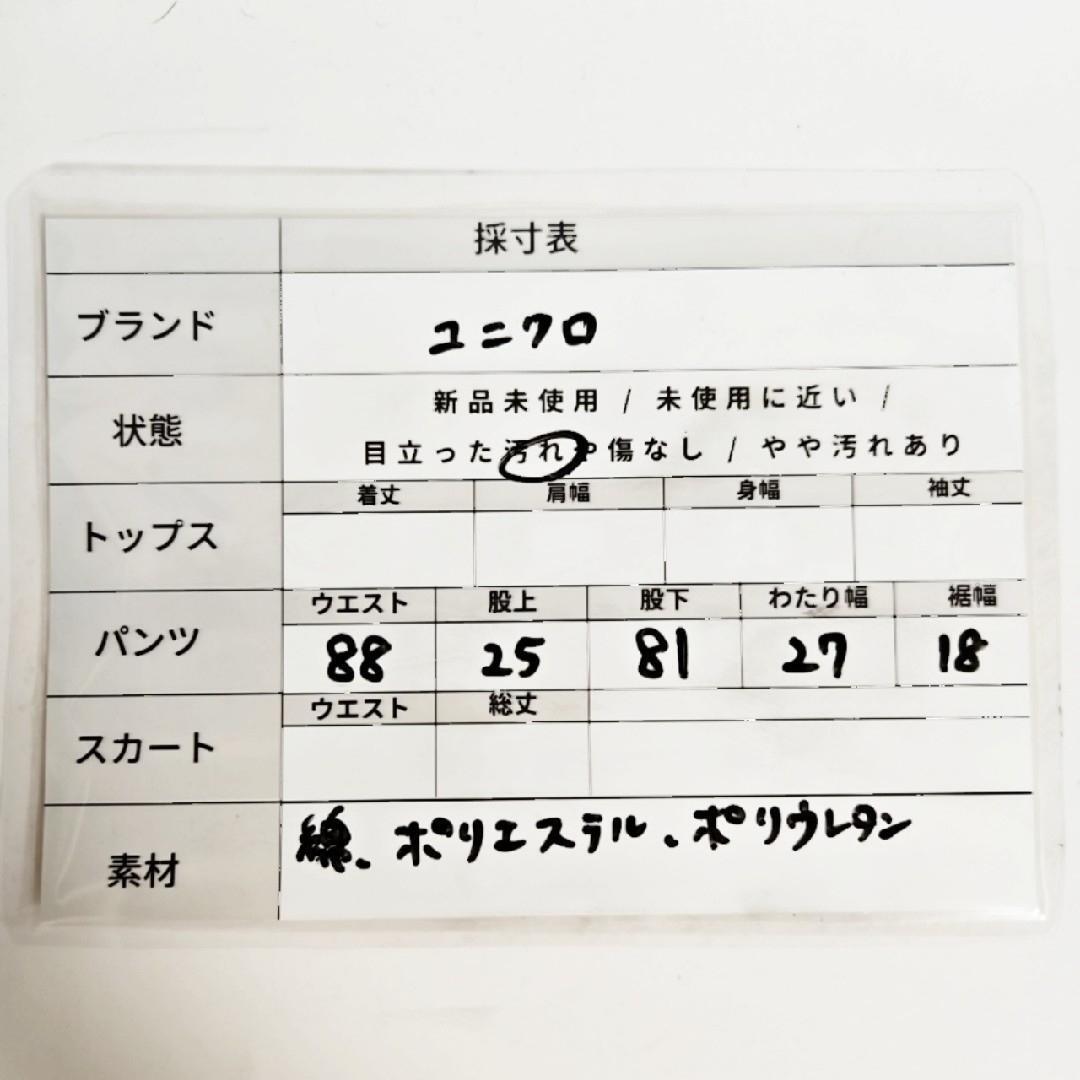 採寸表
ブランド ユニクロ
状態 新品未使用 / 未使用に近い /
目立った汚れや傷なし / やや汚れあり
着丈 肩幅 身幅 袖丈
トップス
ウエスト 股上 股下 わたり幅 裾幅
パンツ 88 25 81 27 18
ウエスト 総丈
スカート
素材 綿、ポリエステル、ポリウレタン